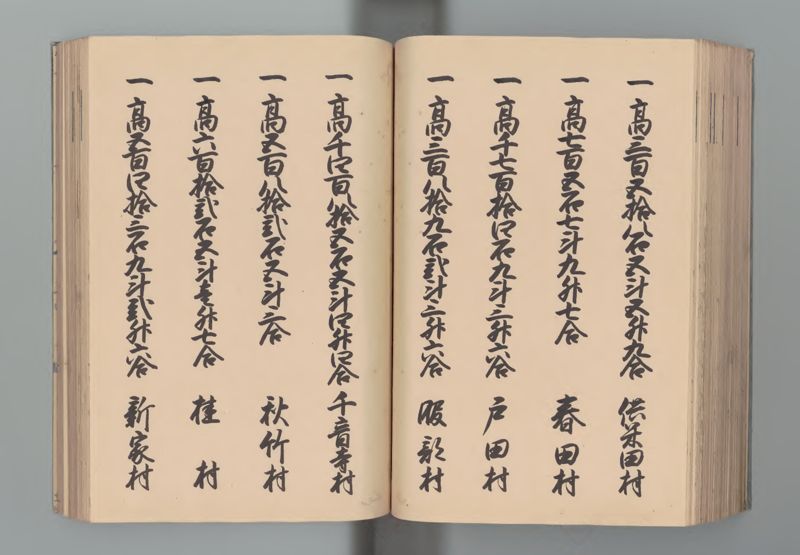 一 高三百五拾八石五斗五升九合 供米田村
一 高七百五石七斗九升七合 春田村
一 高千七百拾四石九斗三升六合 戸田村
一 高三百八拾九石弐斗三升六合 服部村
一 高千四百八拾五石五斗四升四合 千音寺村
一 高五百八拾弐石五斗二合 秋竹村
一 高六百拾弐石五斗壱升七合 桂村
一 高五百四拾三石九斗弐升六合 新家村